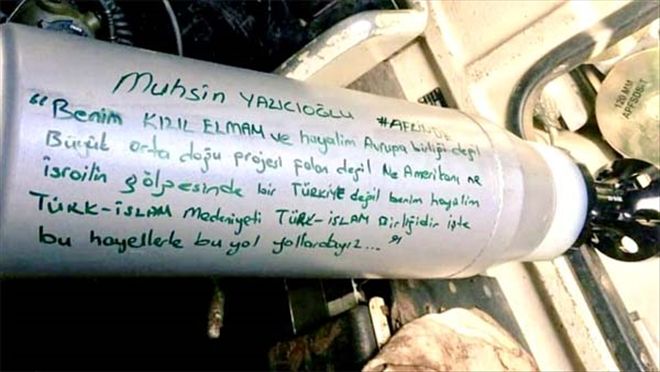 Muhsin YAZICIOĞLU #AFRINDE
"Benim KIZIL ELMAM ve hayalim Avrupa birliği değil
Büyük orta doğu projesi falan değil Ne Amerikanı ne
israilin gölgesinde bir TÜRKİYE değil benim hayalim
TÜRK-İSLAM Medeniyeti TÜRK-İSLAM Birliğidir işte
bu hayellerle bu yol yollardayız..."
120 MM
APFSDS-T